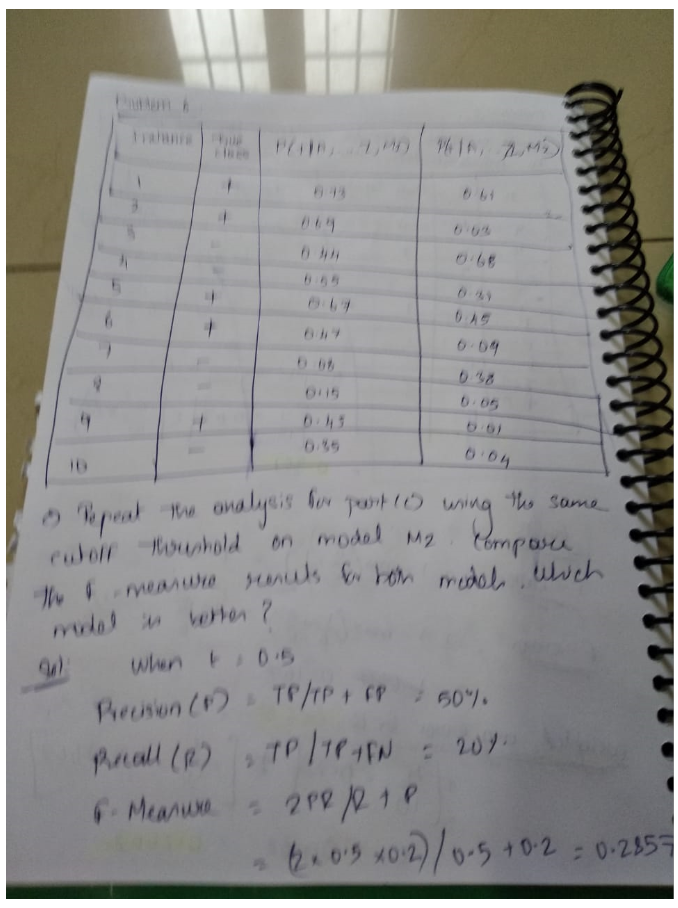 Problem 6
Instance True class P(+|A, ..., Z, M1) P(+|A, ..., Z, M2)
1 + 0.73 0.61
2 + 0.69 0.03
3 - 0.44 0.68
4 - 0.55 0.31
5 + 0.67 0.45
6 + 0.47 0.09
7 - 0.08 0.38
8 - 0.15 0.05
9 + 0.45 0.01
10 - 0.35 0.04
Repeat the analysis for part (c) using the same
cutoff threshold on model M2. Compare
the F-measure results for both models. Which
model is better?
Sol: When t = 0.5
Precision (P) = TP/TP + FP = 50%.
Recall (R) = TP/TP+FN = 20%.
F-Measure = 2PR/R + P
= (2 x 0.5 x 0.2)/0.5 + 0.2 = 0.2857